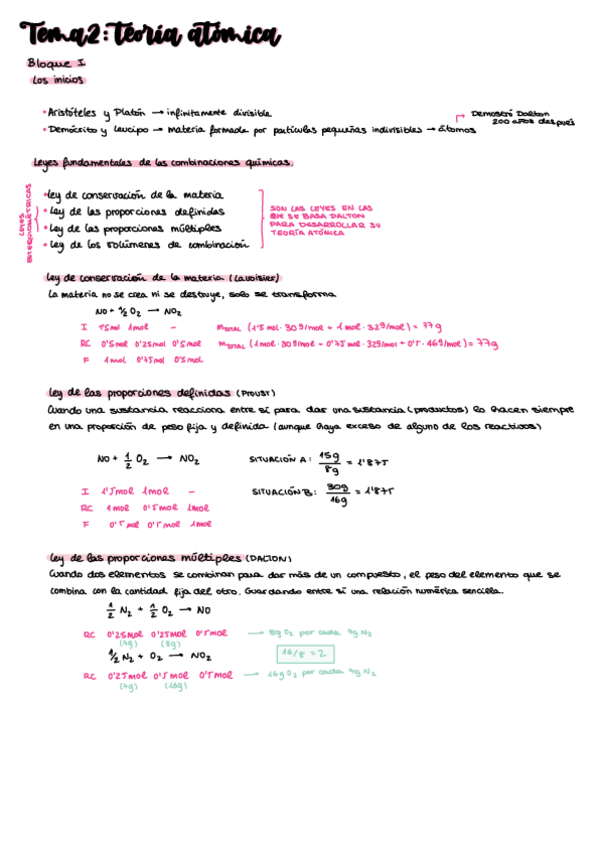 Tema 2: teoría atómica
Bloque I
Los inicios
• Aristóteles y Platón → infinitamente divisible
Demostró Dalton
200 años después
• Demócrito y Leucipo → materia formada por partículas pequeñas indivisibles → átomos
Leyes fundamentales de las combinaciones químicas.
LEYES ESTEQUIOMÉTRICAS
• Ley de conservación de la materia
• Ley de las proporciones definidas
• Ley de las proporciones múltiples
• Ley de los volúmenes de combinación
SON LAS LEYES EN LAS
QUE SE BASA DALTON
PARA DESARROLLAR SU
TEORÍA ATÓMICA
Ley de conservación de la materia (Lavoisier)
La materia no se crea ni se destruye, solo se transforma
NO + 1/2 O2 → NO2
I 1'5mol 1mol - mTOTAL (1'5 mol · 30 g/mol + 1 mol · 32 g/mol) = 77g
RC 0'5mol 0'25mol 0'5mol mTOTAL (1mol · 30g/mol + 0'75 mol · 32g/mol + 0'5 · 46g/mol) = 77g
F 1mol 0'75mol 0'5mol
Ley de las proporciones definidas (PROUST)
Cuando una sustancia reacciona entre sí para dar una sustancia (productos) lo hacen siempre
en una proporción de peso fija y definida (aunque haya exceso de alguno de los reactivos)
NO + 1/2 O2 → NO2 SITUACIÓN A: 15g/8g = 1'875
I 1'5mol 1mol - SITUACIÓN B: 30g/16g = 1'875
RC 1mol 0'5mol 1mol
F 0'5mol 0'5mol 1mol
Ley de las proporciones múltiples (DALTON)
Cuando dos elementos se combinan para dar más de un compuesto, el peso del elemento que se
combina con la cantidad fija del otro. Guardando entre sí una relación numérica sencilla.
1/2 N2 + 1/2 O2 → NO
RC 0'25mol 0'25mol 0'5mol → 8g O2 por cada 7g N2
(7g) (8g)
1/2 N2 + O2 → NO2 16/8 = 2
RC 0'25mol 0'5mol 0'5mol → 16g O2 por cada 7g N2
(7g) (16g)